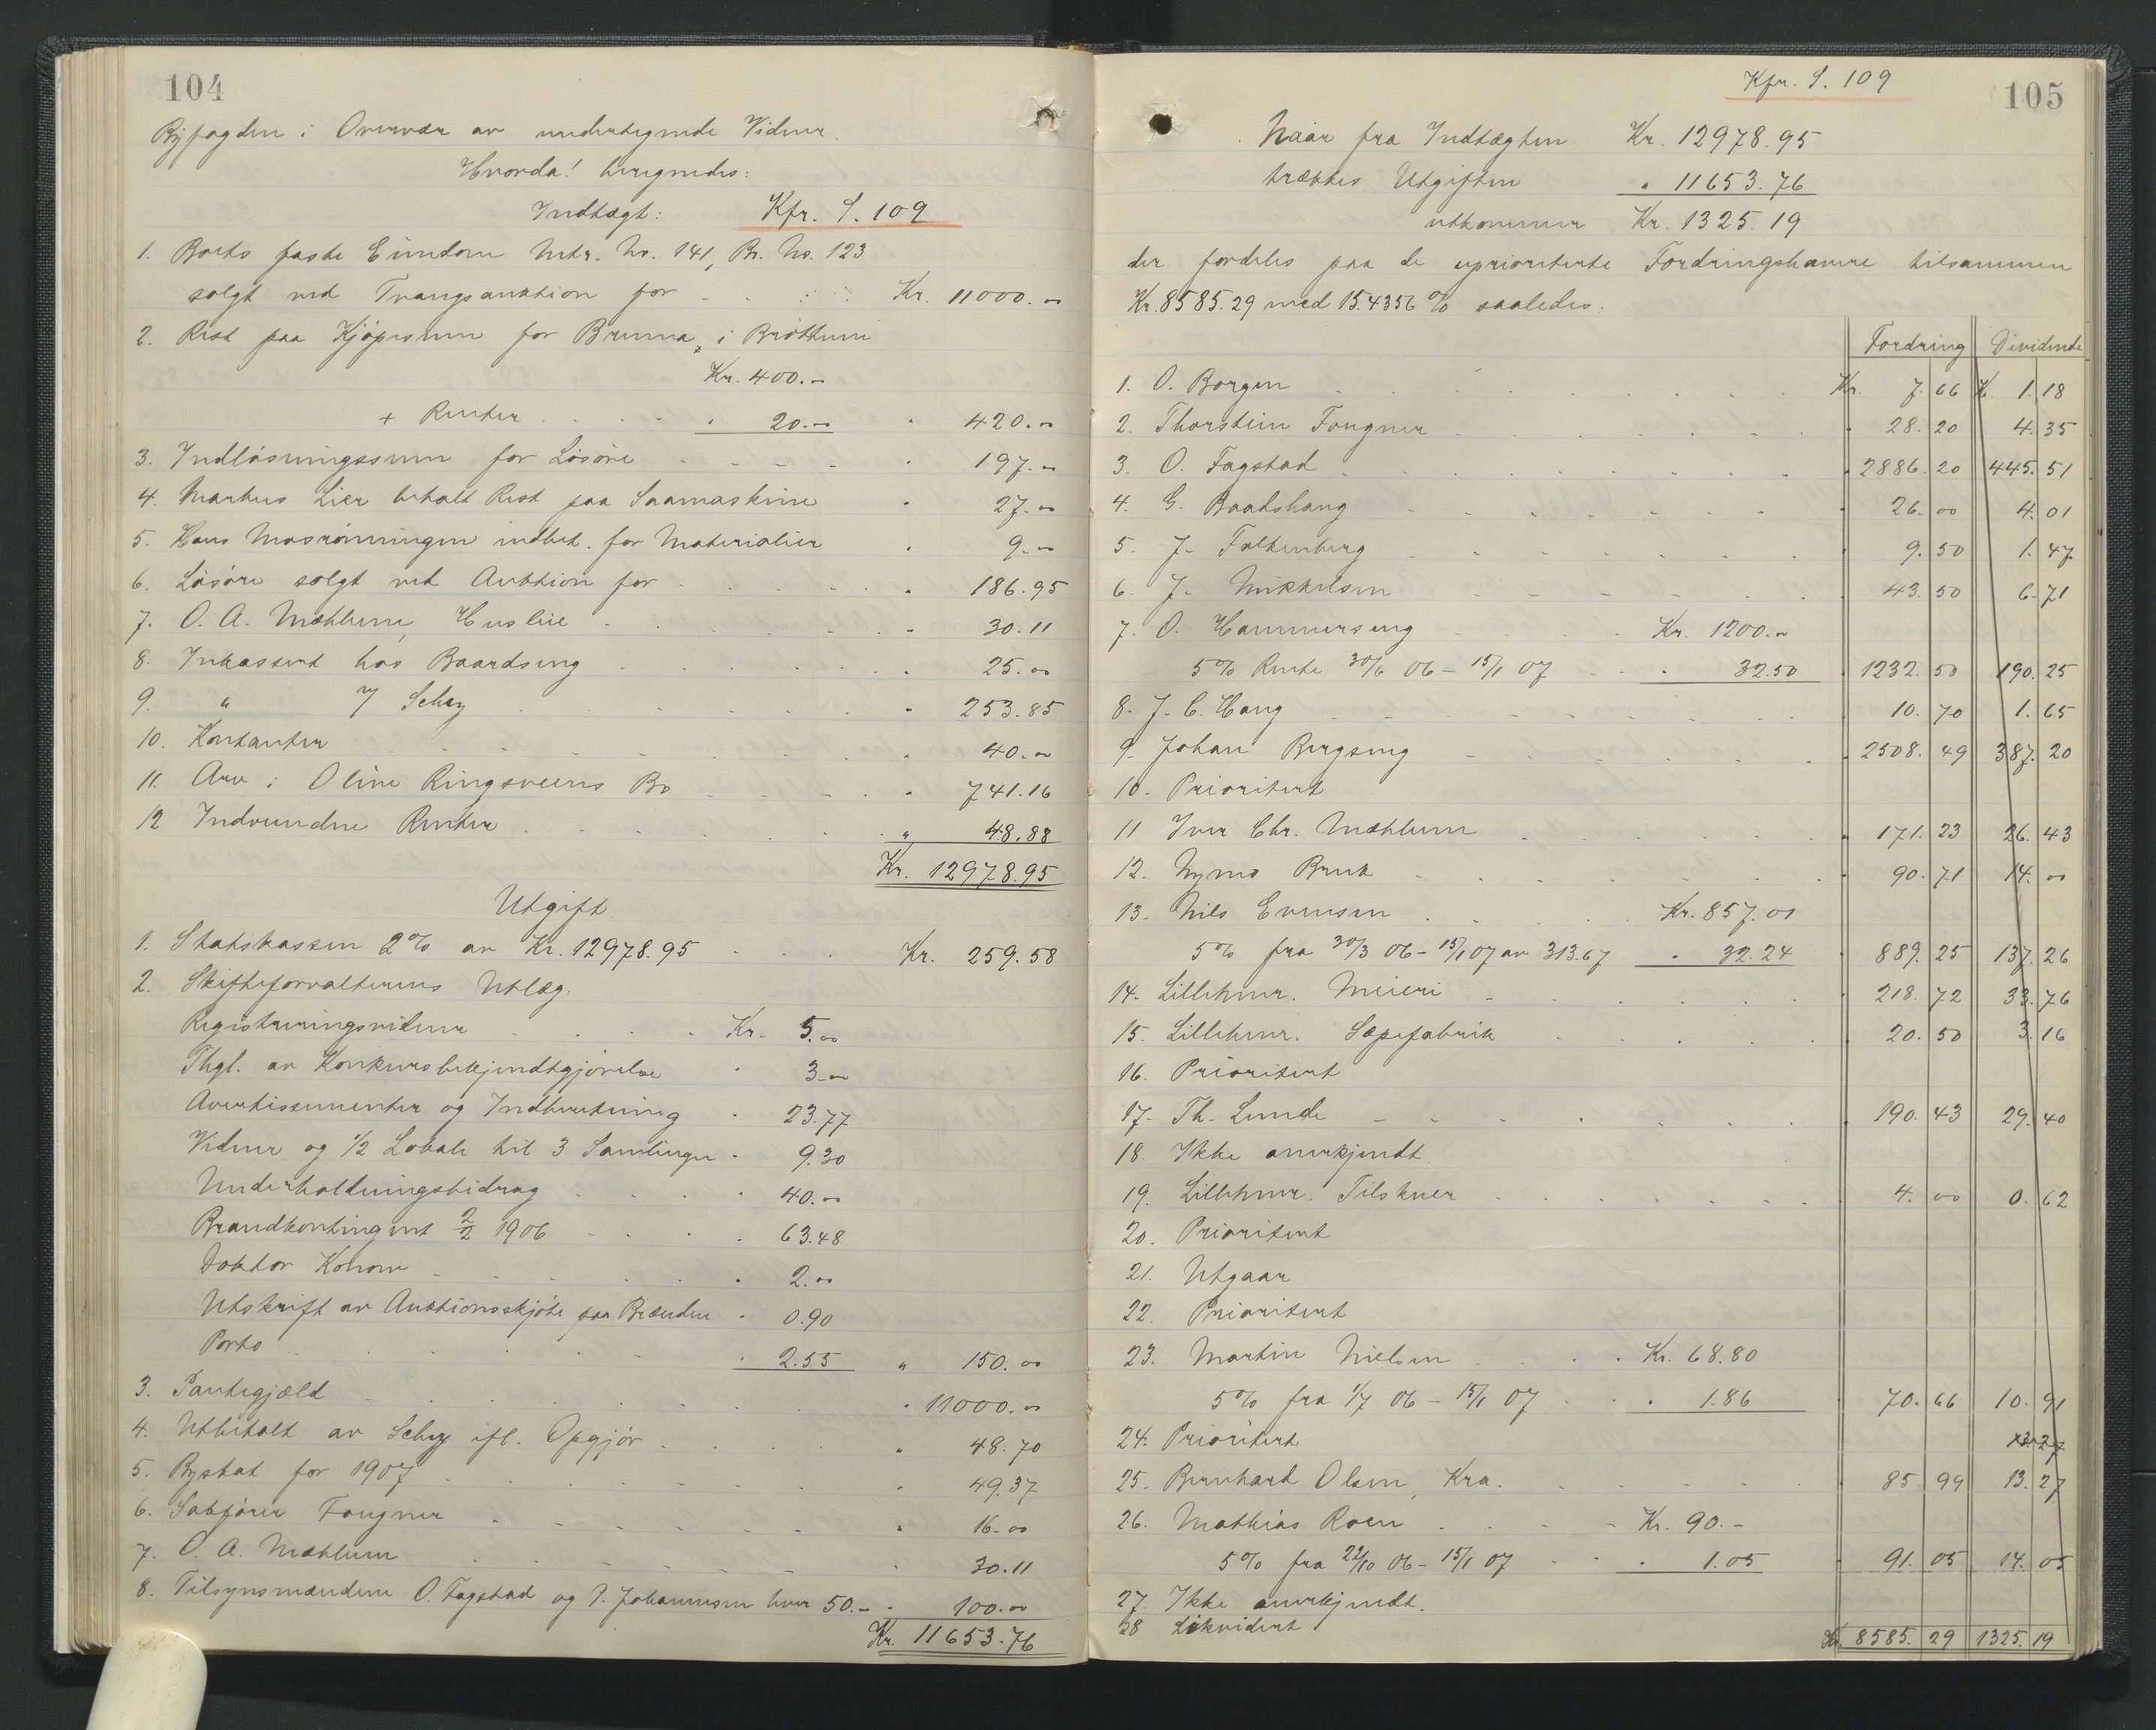 104
Byfogden i Overvær av undertegnede Vidner.
Hvorda! beregnedes:
Indtægt: Kfr. S. 109
1. Boets faste Eiendom Mtr. No. 141, Br. No. 123
solgt ved Tvangsauktion for Kr. 11000.00
2. Rest paa Kjøpesum for Bruma i Brøttum
Kr. 400.-
+ Renter " 20.00 " 420.00
3. Indløsningssum for Løsøre " 197.00
4. Markus Lier betalt Rest paa Saamaskine " 27.00
5. Hans Mosrønningen indbet. for Materialier " 9.00
6. Løsøre solgt ved Auktion for " 186.95
7. O. A. Mæhlum, Husleie " 30.11
8. Inkassert hos Baardseng " 25.00
9. " Schey " 253.85
10. Kontanter " 40.00
11. Arv i Oline Ringsveens Bo " 741.16
12 Indvundne Renter " 48.88
Kr. 12978.95
Utgift.
1. Statskassen 2% av Kr. 12978.95 Kr. 259.58
2. Skifteforvalterens Utlæg:
Registreringsvidner Kr. 5.00
Thgl. av Konkursbekjendtgjørelse " 3.00
Avertissementer og Indberetning " 23.77
Vidner og 1/2 Lokale til 3 Samlinger " 9.30
Underholdningsbidrag " 40.00
Brandkontingent 2/2 1906 " 63.48
Doktor Konow " 2.00
Utskrift av Auktionsskjøte paa Brænden " 0.90
Porto " 2.55 " 150.00
3. Pantegjæld " 11000.00
4. Utbetalt av Schey ifl. Opgjør " 48.70
5. Byskat for 1907 " 49.37
6. Sakfører Fougner " 16.00
7. O. A. Mæhlum " 30.11
8. Tilsynsmændene O. Fagstad og P. Johannesen hver 50.- " 100.00
Kr. 11653.76
Kfr. S. 109
105
Naar fra Indtægten Kr. 12978.95
trækkes Utgiften " 11653.76
utkommer Kr. 1325.19
der fordeles paa de uprioriterte Fordringshavere tilsammen
Kr. 8585.29 med 15.4356 % saaledes:
Fordring Dividende
1. O. Borgen Kr. 7.66 K. 1.18
2. Thorstein Fougner " 28.20 4.35
3. O. Fagstad " 2886.20 445.51
4. G. Baadshaug " 26.00 4.01
5. J. Falkenberg " 9.50 1.47
6. J. Mikkelsen " 43.50 6.71
7. O. Hammerseng Kr. 1200.00
5% Rente 30/6 06 - 15/1 07 " 32.50 " 1232.50 190.25
8. J. C. Haug " 10.70 1.65
9. Johan Bergseng " 2508.49 387.20
10. Prioritert
11 Iver Chr. Mæhlum " 171.23 26.43
12. Nymo Bruk " 90.71 14.00
13. Nils Evensen Kr. 857.01
5% fra 30/3 06 - 15/1 07 av 313.67 " 32.24 " 889.25 137.26
14. Lillehmr. Meieri " 218.72 33.76
15. Lillehmr. Sæpefabrik " 20.50 3.16
16. Prioritert
17. Th. Lunde " 190.43 29.40
18. Ikke anerkjendt.
19. Lillehmr. Tilskuer " 4.00 0.62
20. Prioritert
21. Utgaar
22. Prioritert
23. Martin Nielsen Kr. 68.80
5% fra 1/7 06 - 15/1 07 " 1.86 " 70.66 10.91
24. Prioritert 13.27
25. Bernhard Olsen, Kra. " 85.99 13.27
26. Mathias Roen Kr. 90.-
5% fra 22/10 06 - 15/1 07 " 1.05 " 91.05 14.05
27. Ikke anerkjendt.
28 Likvidert
Kr. 8585.29 1325.19